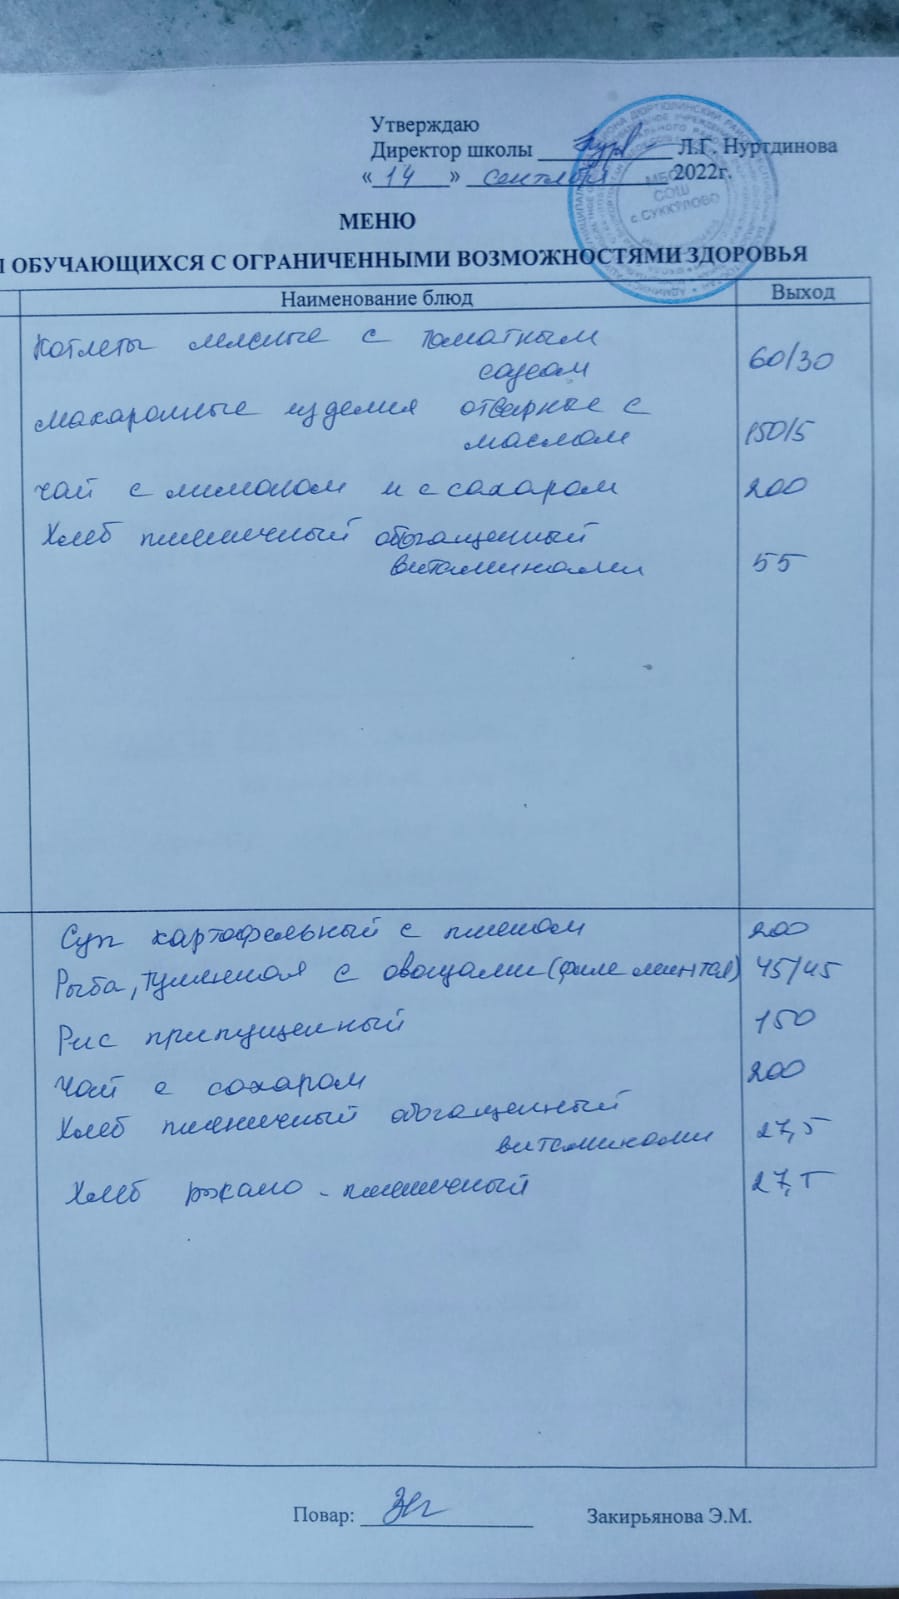 Утверждаю
Директор школы Л.Г. Нуртдинова
«14» сентября 2022г.
МБОУ
СОШ
с.СУККУЛОВО
МЕНЮ
ОБУЧАЮЩИХСЯ С ОГРАНИЧЕННЫМИ ВОЗМОЖНОСТЯМИ ЗДОРОВЬЯ
Наименование блюд Выход
Котлеты мясные с томатным
соусом 60/30
Макаронные изделия отварные с
маслом 150/5
Чай с лимоном и с сахаром 200
Хлеб пшеничный обогащенный
витаминами 55
Суп картофельный с пшеном 200
Рыба, тушенная с овощами (филе минтая) 45/45
Рис припущенный 150
Чай с сахаром 200
Хлеб пшеничный обогащенный
витаминами 27,5
Хлеб ржано-пшеничный 27,5
Повар: Закирьянова Э.М.